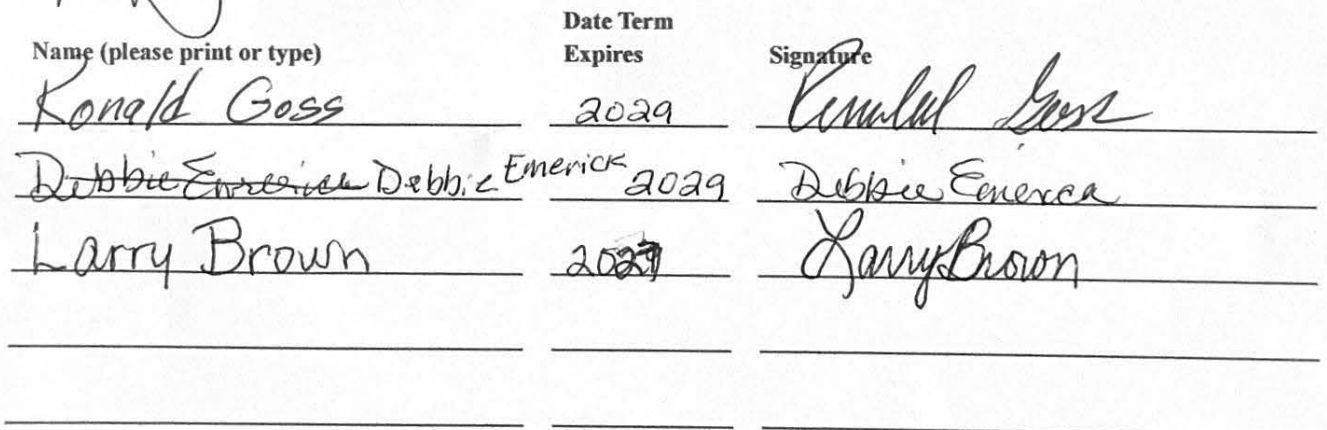 Date Term
Name (please print or type) Expires Signature
Ronald Goss 2029 Ronald Goss
Debbie Emerick Debbie Emerick 2029 Debbie Emerick
Larry Brown 2027 Larry Brown